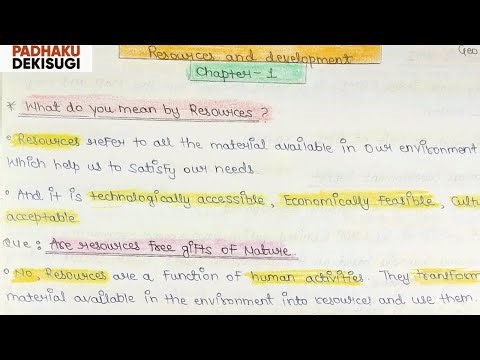 PADHAKU
DEKISUGI
Resources and development
Geo
Chapter-1
* What do you mean by Resources?
Resources refer to all the material available in our environment
which help us to satisfy our needs
And it is technologically accessible, Economically feasible, Cult
acceptable
Que: Are resources free gifts of Nature
No, Resources are a function of human activities. They transform
material available in the environment into resources and use them.